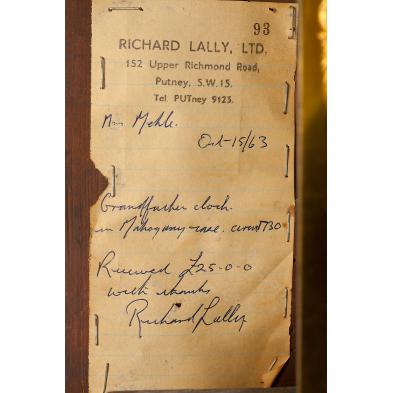 93
RICHARD LALLY, LTD.
152 Upper Richmond Road,
Putney, S.W.15.
Tel. PUTney 9123.
Mrs Mehle.
Oct-15/63
Grandfather clock
in Mahogany case. circa 1730
Received £25-0-0
with thanks
Richard Lally